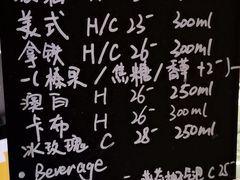 美式 H/C 25- 300ml
拿铁 H/C 26- 300ml
-(榛果/焦糖/香草+2-)-
澳白 H 26- 250ml
卡布 H 26- 300ml
冰玫瑰 C 28- 250ml
• Beverage
C 25-